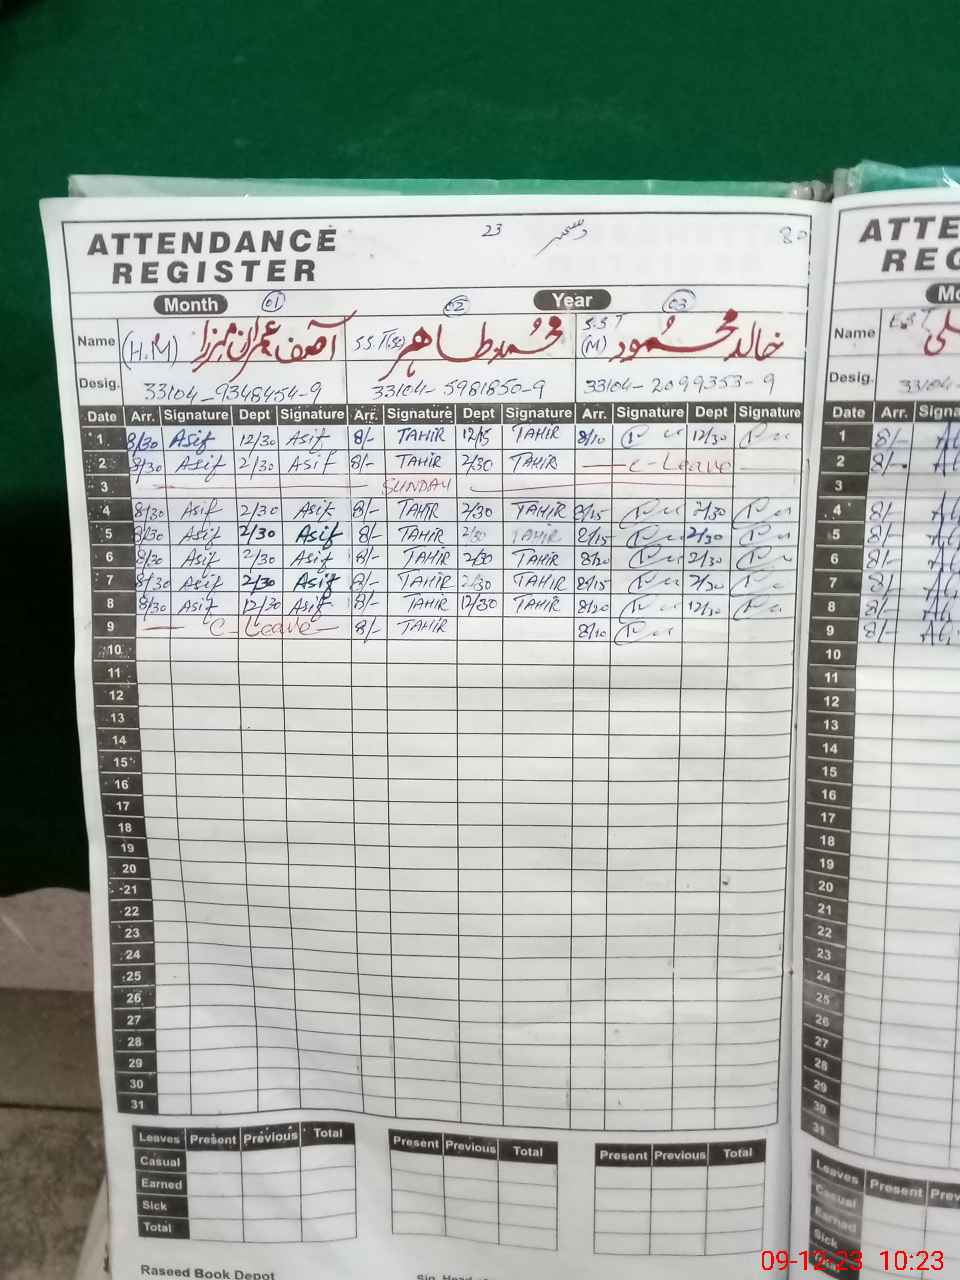 ATTENDANCE REGISTER
23 دسمبر
80
Month 01 02 Year 03
Name (H.M) آصف عمران مرزا S.S.T(Sc) محمد طاہر S.S.T (M) خالد محمود
Desig. 33104-9348454-9 33104-5981850-9 33104-2099353-9
Date Arr. Signature Dept Signature Arr. Signature Dept Signature Arr. Signature Dept Signature
1 8/30 Asif 12/30 Asif 8/- TAHIR 12/15 TAHIR 8/10 12/30
2 8/30 Asif 2/30 Asif 8/- TAHIR 2/30 TAHIR C-Leave
3 SUNDAY
4 8/30 Asif 2/30 Asif 8/- TAHIR 2/30 TAHIR 8/15 2/30
5 8/30 Asif 2/30 Asif 8/- TAHIR 2/30 TAHIR 8/15 2/30
6 8/30 Asif 2/30 Asif 8/- TAHIR 2/30 TAHIR 8/20 2/30
7 8/30 Asif 2/30 Asif 8/- TAHIR 2/30 TAHIR 8/15 2/30
8 8/30 Asif 12/30 Asif 8/- TAHIR 12/30 TAHIR 8/20 12/30
9 C-Leave 8/- TAHIR 8/10
10
11
12
13
14
15
16
17
18
19
20
21
22
23
24
25
26
27
28
29
30
31
Leaves Present Previous Total Present Previous Total Present Previous Total
Casual
Earned
Sick
Total
Raseed Book Depot
ATTE
REG
Name E.S.T
Desig. 33104-
Date Arr. Signa
1 8/-
2 8/-
3
4 8/-
5 8/-
6 8/-
7 8/-
8 8/-
9 8/-
10
11
12
13
14
15
16
17
18
19
20
21
22
23
24
25
26
27
28
29
30
31
Leaves Present Prev
Casual
Earned
Sick
Total
09-12-23 10:23